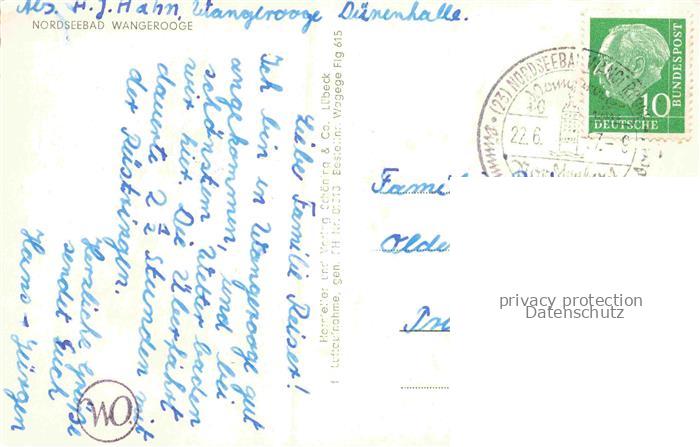 Abs. H. J. Hahn, Wangerooge Dünenhalle.
NORDSEEBAD WANGEROOGE
Liebe Familie Reiser!
Ich bin in Wangerooge gut
angekommen, und bei
schönstem Wetter baden
wir hier. Die Überfahrt
dauerte 2 1/2 Stunden mit
der Rüstringen.
Herzliche Grüße
sendet Euch
Hans-Jürgen
Hersteller und Verlag Schöning & Co. Lübeck
Luftaufnahme, gen. Bestell-nr. Wagege Flg 615
(23) NORDSEEBAD
22.6.
10
DEUTSCHE
BUNDESPOST
Fami
Olde
privacy protection
Datenschutz